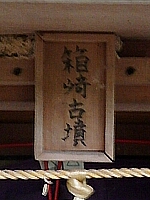 箱崎古墳